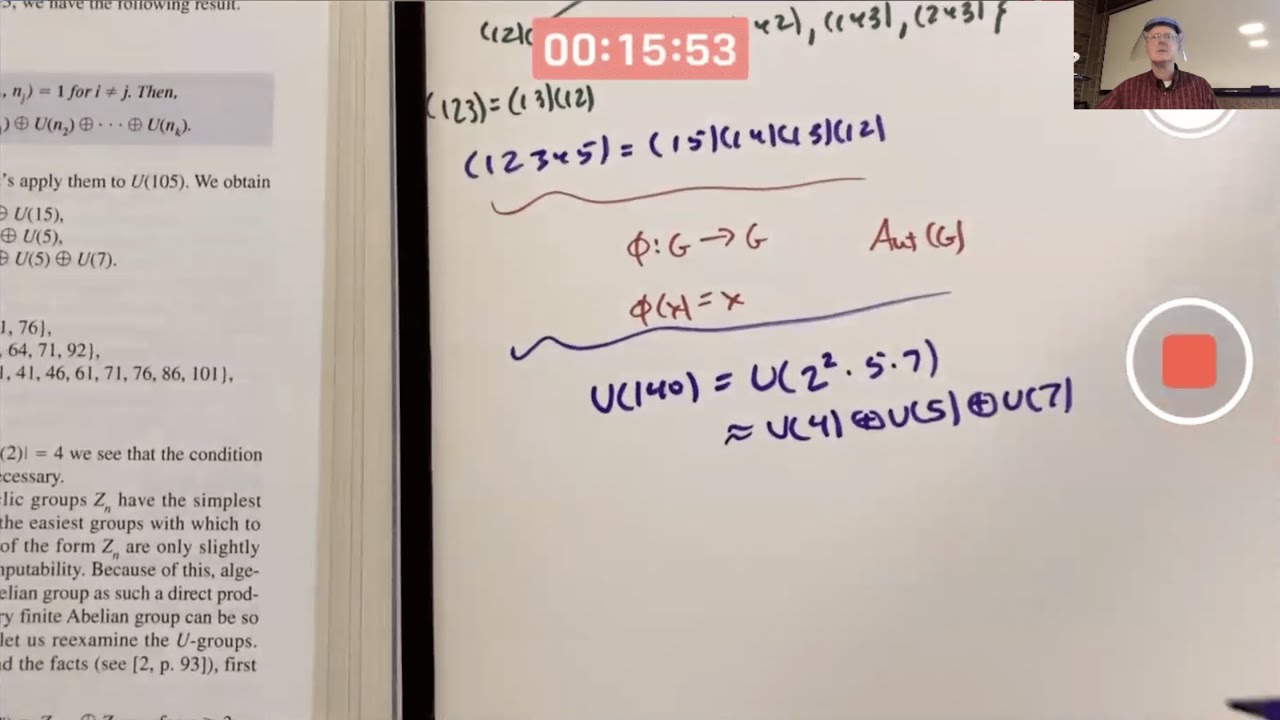 we have the following result.
, nⱼ) = 1 for i ≠ j. Then,
) ⊕ U(n₂) ⊕ · · · ⊕ U(nₖ).
's apply them to U(105). We obtain
⊕ U(15),
⊕ U(5),
⊕ U(5) ⊕ U(7).
1, 76},
64, 71, 92},
1, 41, 46, 61, 71, 76, 86, 101},
(2)| = 4 we see that the condition
cessary.
lic groups Zₙ have the simplest
the easiest groups with which to
of the form Zₙ are only slightly
nputability. Because of this, alge-
elian group as such a direct prod-
ry finite Abelian group can be so
let us reexamine the U-groups.
d the facts (see [2, p. 93]), first
00:15:53
42), (143), (243)
(123) = (13)(12)
(12345) = (15)(14)(13)(12)
ϕ: G → G Aut(G)
ϕ(x) = x
U(140) = U(2² · 5 · 7)
≈ U(4) ⊕ U(5) ⊕ U(7)